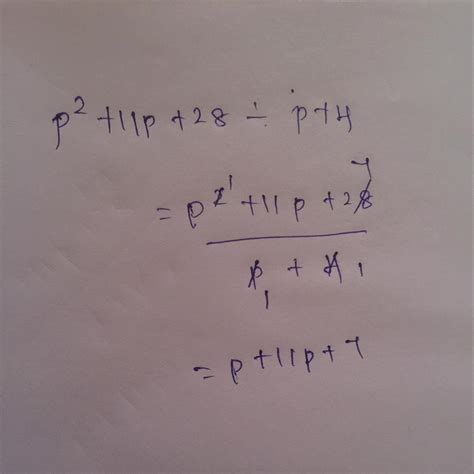 p² + 11p + 28 ÷ p+4
= p²¹ + 11p + 28 7
p 1 + 4 1
= p + 11p + 7